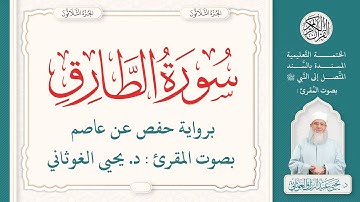 الجزء الثلاثون
الجزء الثلاثون
سُورَةُ الطَّارِقِ
برواية حفص عن عاصم
بصوت المقرئ : د. يحيى الغوثاني
القرآن الكريم
الختمة التعليمية
المسندة بالسند
المتصل إلى النبي ﷺ
بصوت المقرئ :
د. يحيى عبد الرزاق الغوثاني